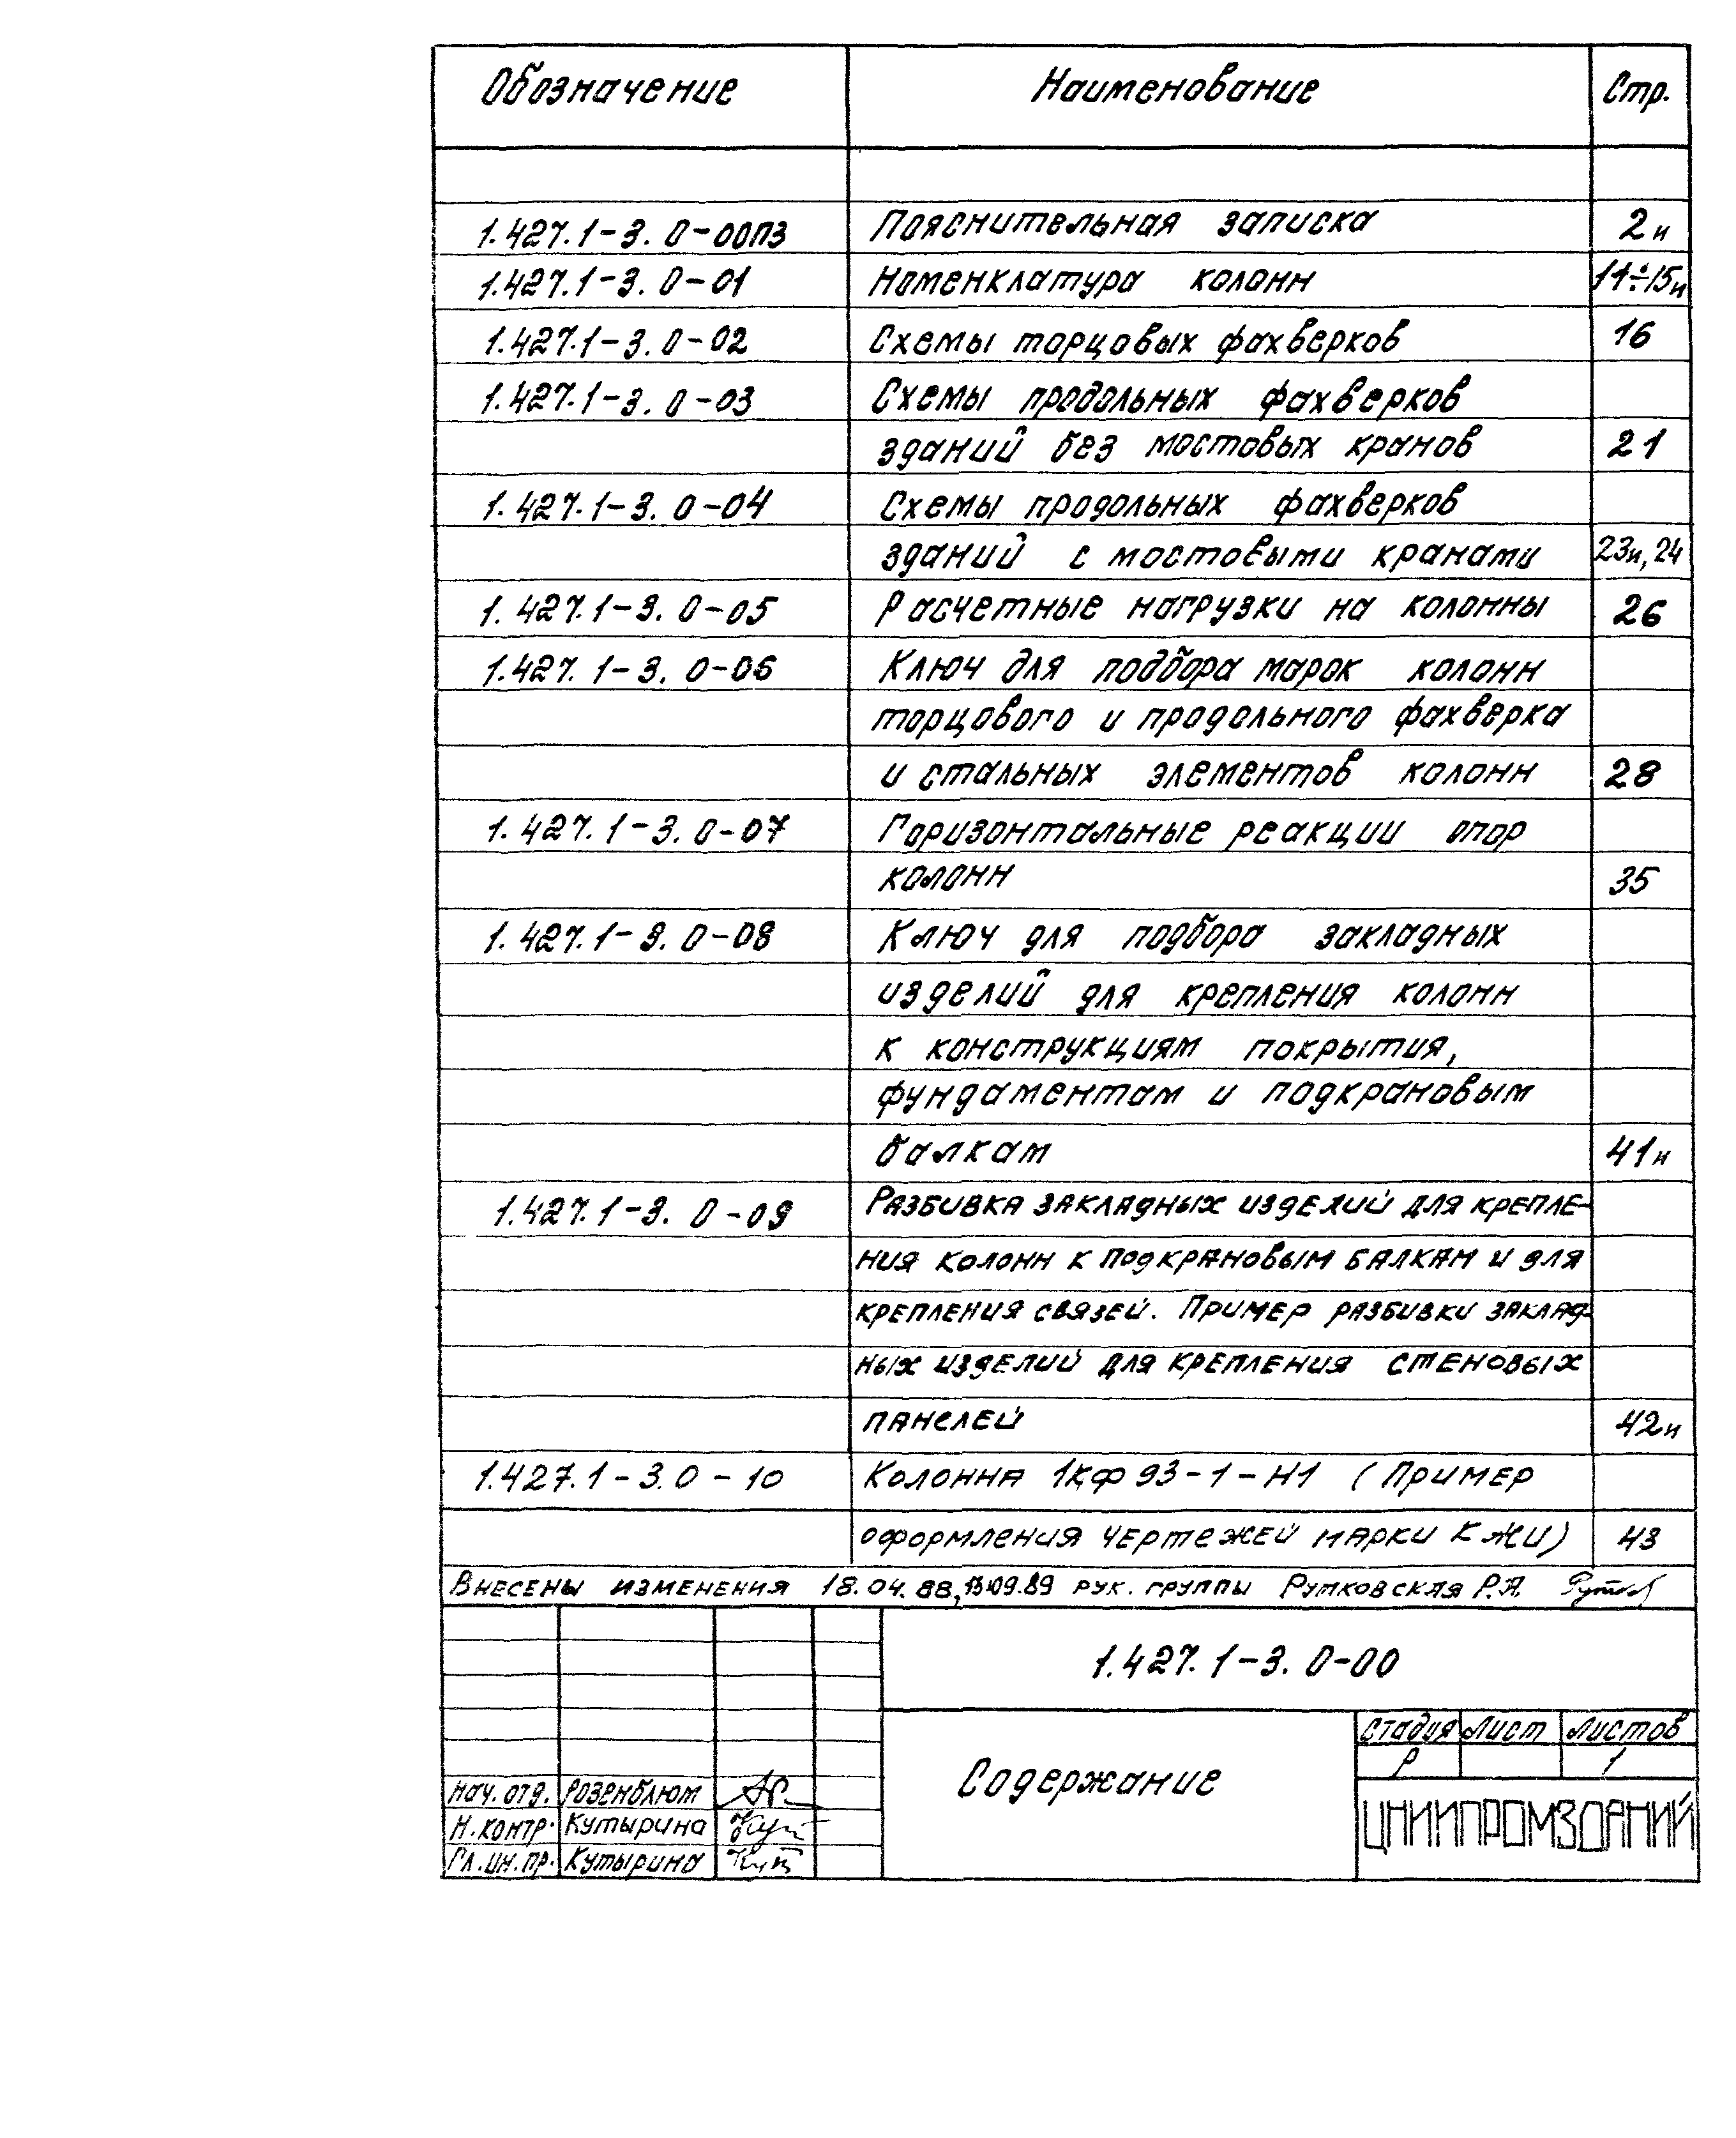 Обозначение Наименование Стр.
1.427.1-3.0-00ПЗ Пояснительная записка 2и
1.427.1-3.0-01 Номенклатура колонн 11÷15и
1.427.1-3.0-02 Схемы торцовых фахверков 16
1.427.1-3.0-03 Схемы продольных фахверков
зданий без мостовых кранов 21
1.427.1-3.0-04 Схемы продольных фахверков
зданий с мостовыми кранами 23и, 24
1.427.1-3.0-05 Расчетные нагрузки на колонны 26
1.427.1-3.0-06 Ключ для подбора марок колонн
торцового и продольного фахверка
и стальных элементов колонн 28
1.427.1-3.0-07 Горизонтальные реакции опор
колонн 35
1.427.1-3.0-08 Ключ для подбора закладных
изделий для крепления колонн
к конструкциям покрытия,
фундаментам и подкрановым
балкам 41и
1.427.1-3.0-09 Разбивка закладных изделий для крепле-
ния колонн к подкрановым балкам и для
крепления связей. Пример разбивки заклад-
ных изделий для крепления стеновых
панелей 42и
1.427.1-3.0-10 Колонна 1КФ93-1-Н1 (Пример
оформления чертежей марки КЖИ) 43
Внесены изменения 18.04.88, 13.09.89 рук. группы Рутковская Р.А.
1.427.1-3.0-00
Содержание
Стадия Лист Листов
Р 1
ЦНИИПРОМЗДАНИЙ
Нач. отд. Розенблюм
Н.контр. Кутырина
Гл.ин.пр. Кутырина